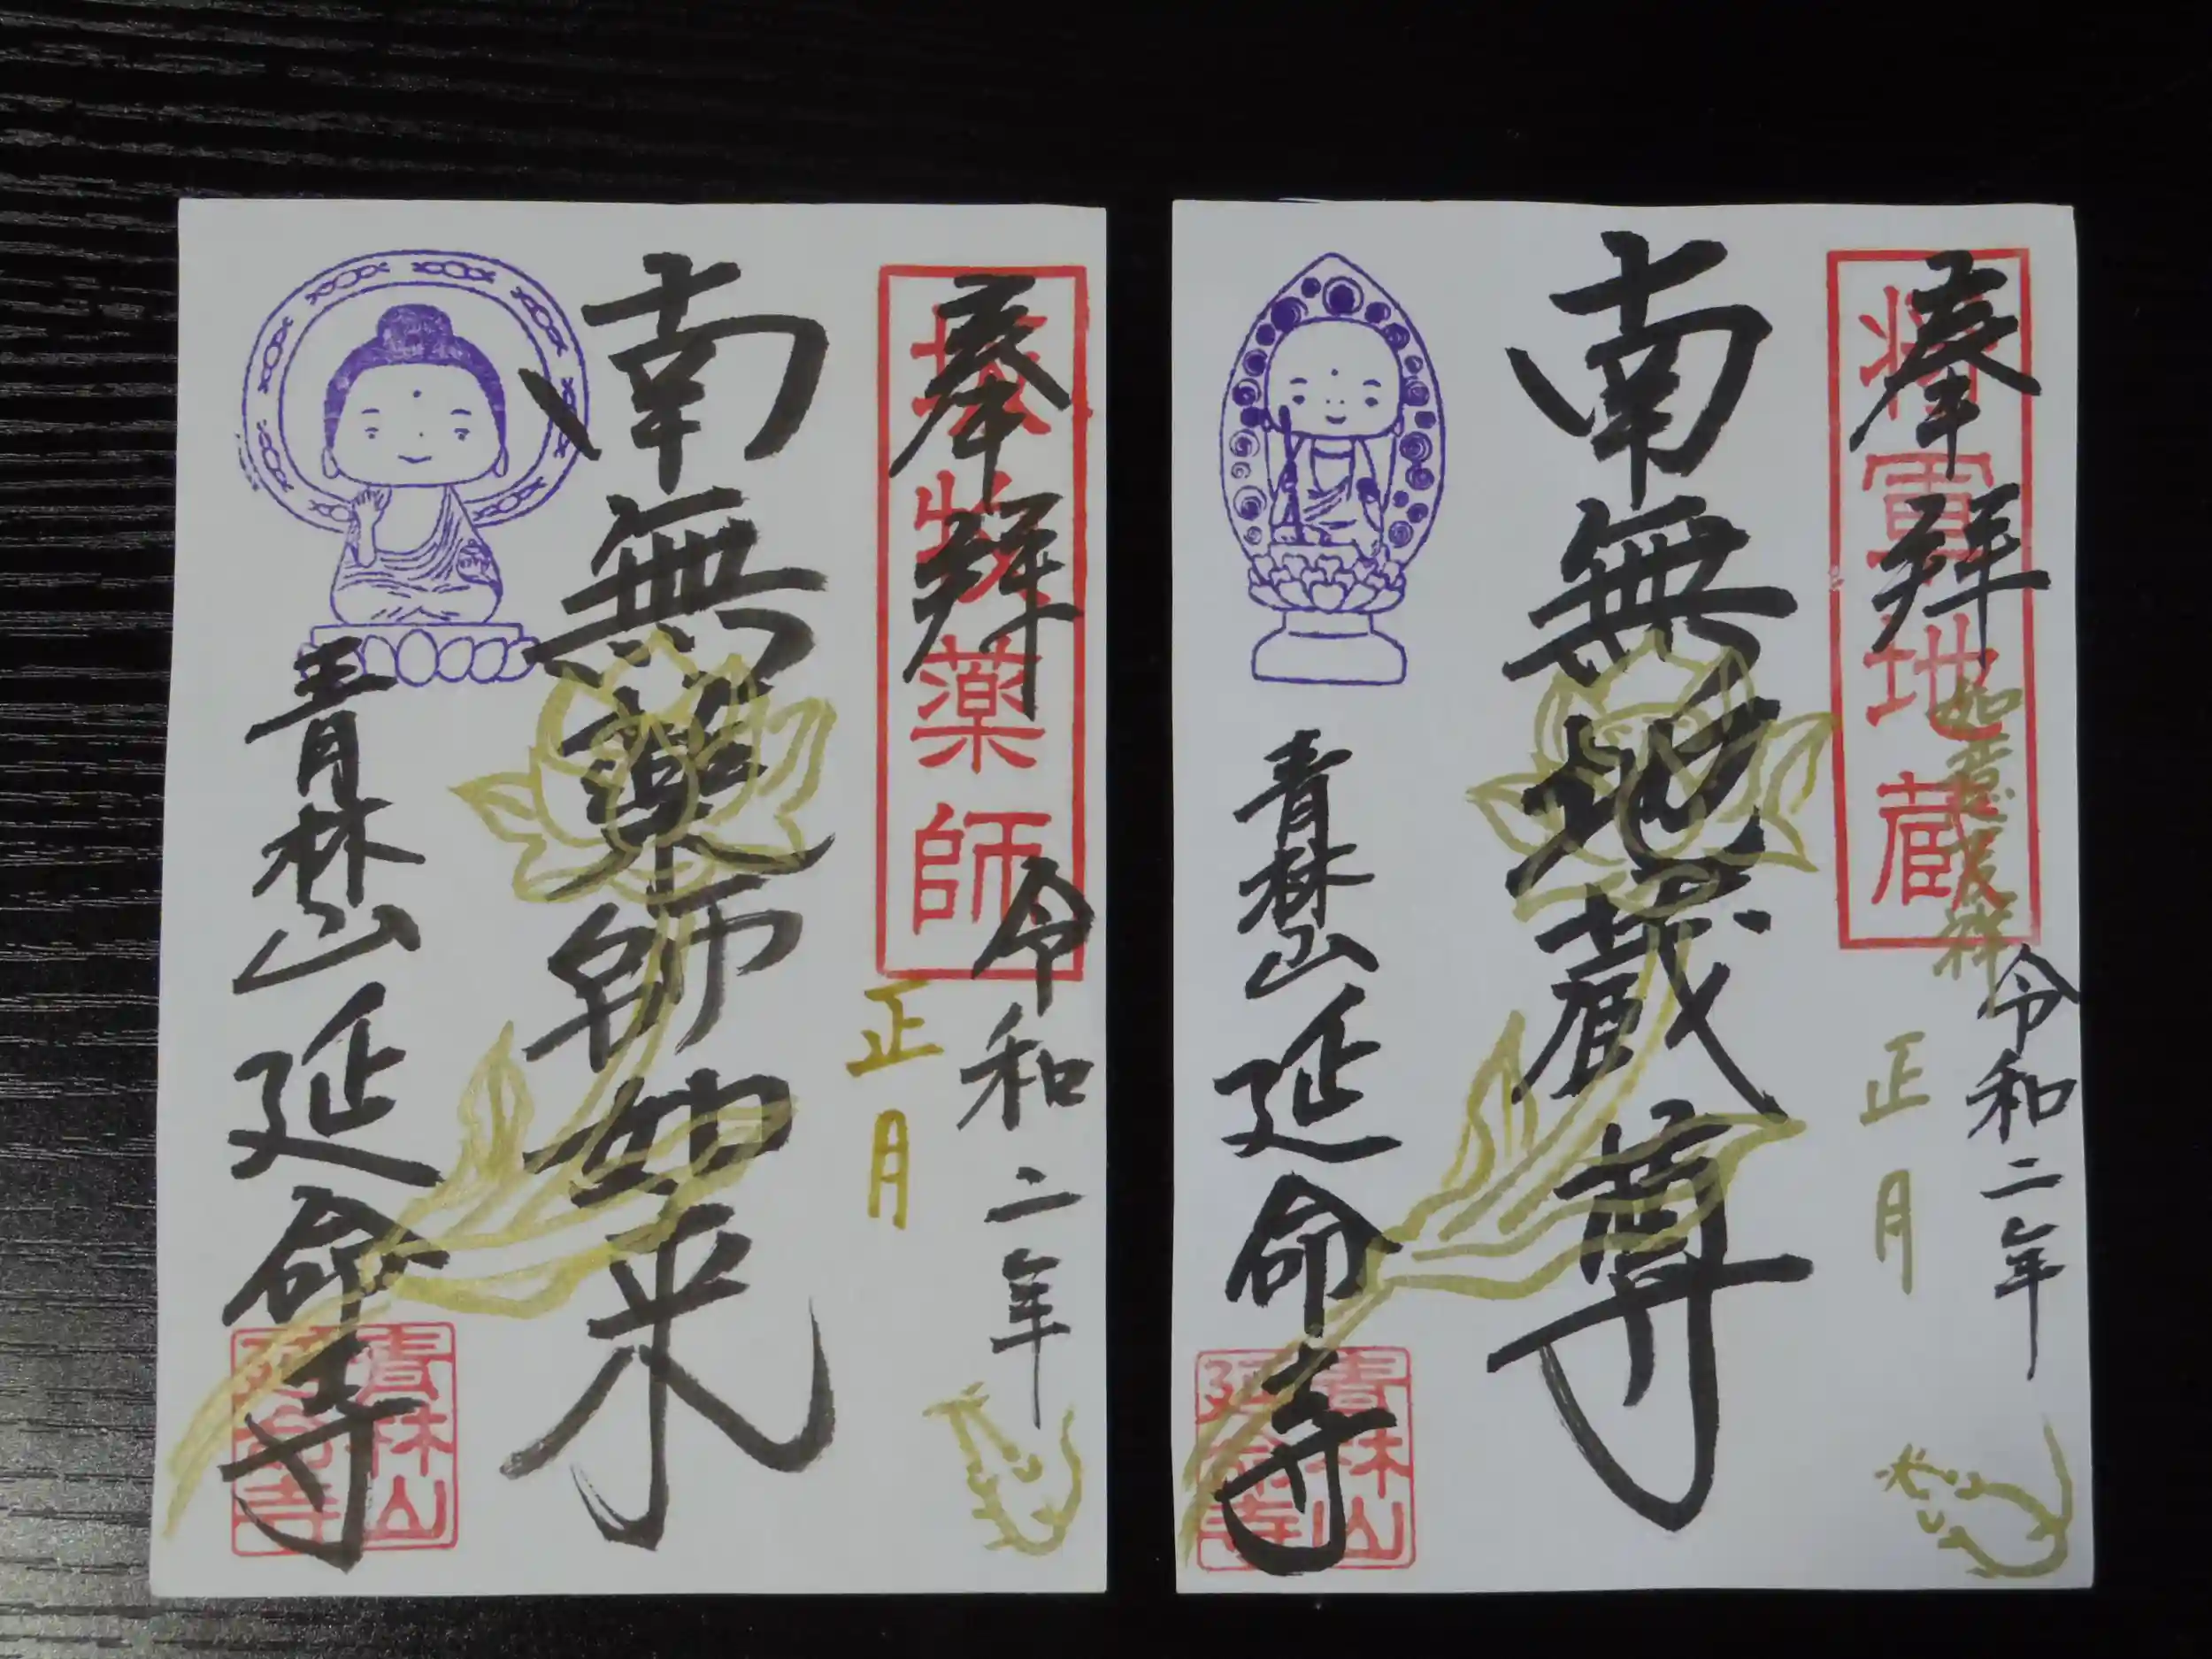 奉拝
薬師
令和二年
正月
南無薬師如来
青林山
延命寺
青林山
延命寺
奉拝
将軍地蔵
令和二年
正月
南無地蔵尊
青林山
延命寺
青林山
延命寺